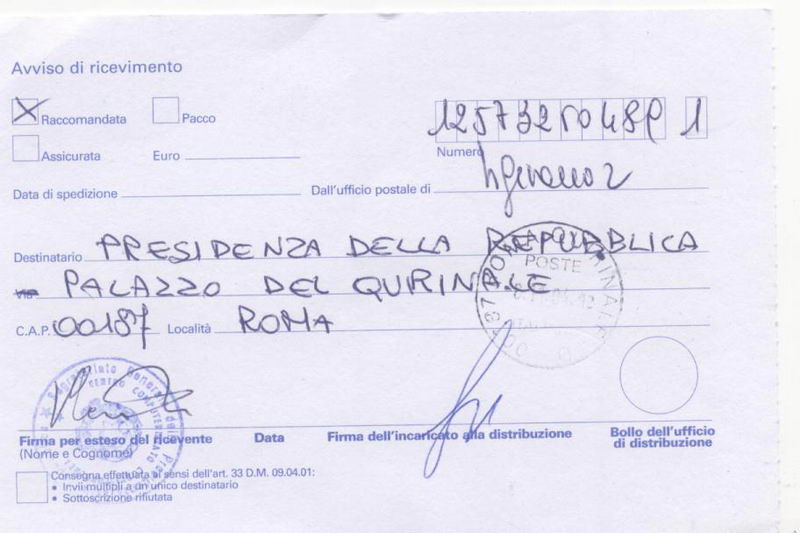 Avviso di ricevimento
Raccomandata Pacco
Assicurata Euro Numero
Data di spedizione Dall'ufficio postale di
Destinatario PRESIDENZA DELLA REPUBBLICA
Via PALAZZO DEL QUIRINALE
C.A.P. 00187 Località ROMA
POSTE
Firma per esteso del ricevente Data Firma dell'incaricato alla distribuzione Bollo dell'ufficio
(Nome e Cognome) di distribuzione
Consegna effettuata ai sensi dell'art. 33 D.M. 09.04.01:
• Invii multipli a un unico destinatario
• Sottoscrizione rifiutata